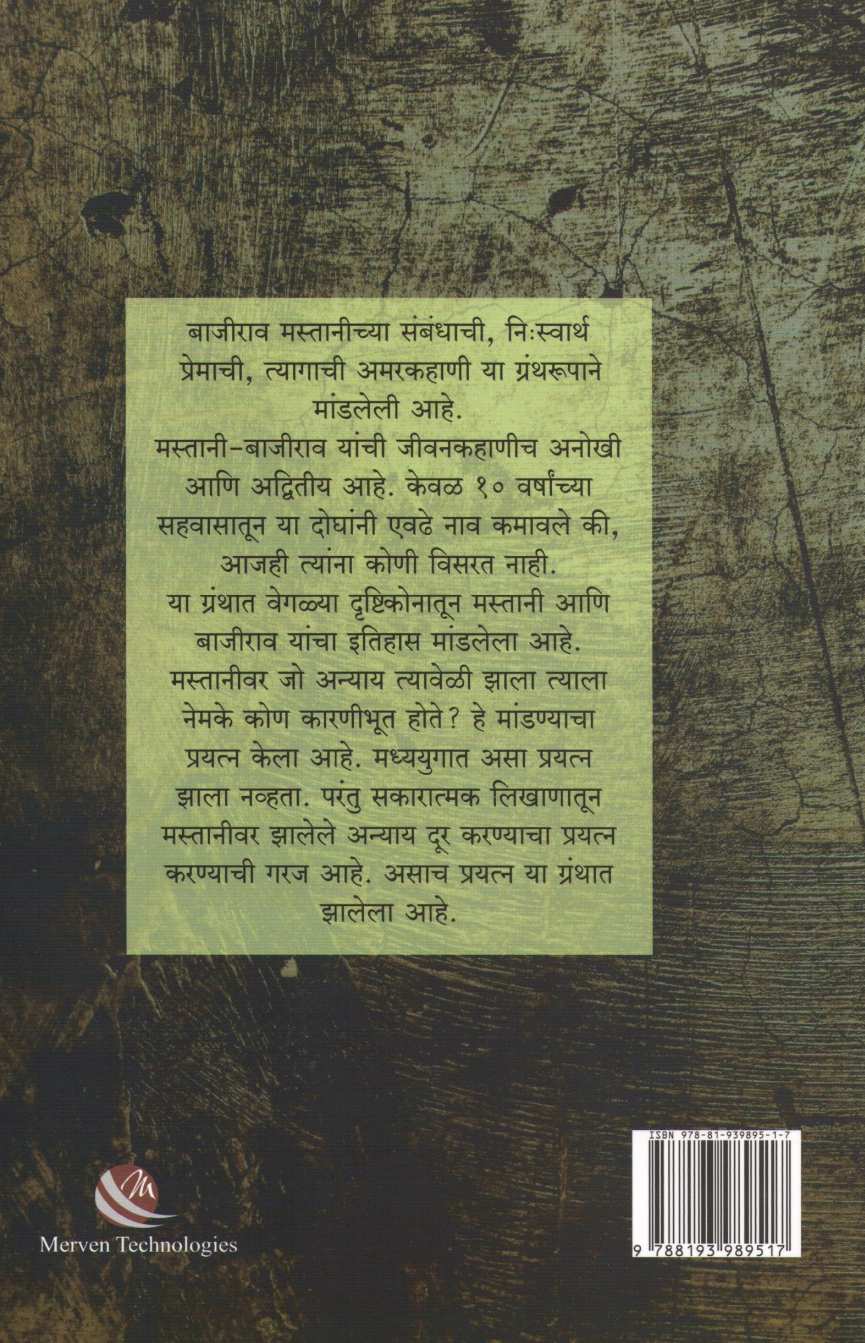 बाजीराव मस्तानीच्या संबंधाची, निःस्वार्थ
प्रेमाची, त्यागाची अमरकहाणी या ग्रंथरूपाने
मांडलेली आहे.
मस्तानी-बाजीराव यांची जीवनकहाणीच अनोखी
आणि अद्वितीय आहे. केवळ १० वर्षांच्या
सहवासातून या दोघांनी एवढे नाव कमावले की,
आजही त्यांना कोणी विसरत नाही.
या ग्रंथात वेगळ्या दृष्टिकोनातून मस्तानी आणि
बाजीराव यांचा इतिहास मांडलेला आहे.
मस्तानीवर जो अन्याय त्यावेळी झाला त्याला
नेमके कोण कारणीभूत होते? हे मांडण्याचा
प्रयत्न केला आहे. मध्ययुगात असा प्रयत्न
झाला नव्हता. परंतु सकारात्मक लिखाणातून
मस्तानीवर झालेले अन्याय दूर करण्याचा प्रयत्न
करण्याची गरज आहे. असाच प्रयत्न या ग्रंथात
झालेला आहे.
M
Merven Technologies
ISBN 978-81-939895-1-7
9 788193 989517